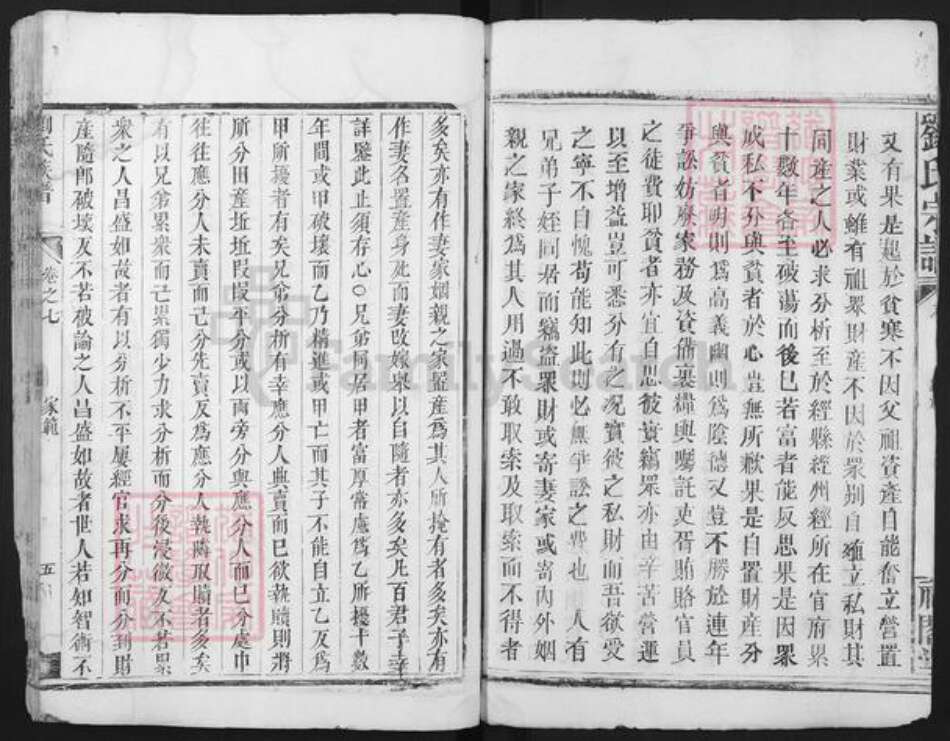 劉氏宗譜
又有果是起於貧寒不因父祖資產自能奮立營置
財業或雖有祖眾財產不因於眾別自殖立私財其
同產之人必求分析至於經縣經州經所在官府累
十數年各至破蕩而後已若富者能反思果是因眾
成私不分與貧者於心豈無所歉果是自置財產分
與貧者明則為高義幽則為陰德又豈不勝於連年
爭訟妨廢家務及資備裹糧與囑託吏胥賄賂官員
之徒費耶貧者亦宜自思彼實竊眾亦由辛苦營運
以至增益豈可悉分有之况實彼之私財而吾欲受
之寧不自愧苟能知此則必無爭訟之費也 人有
兄弟子姪同居而竊盜眾財或寄妻家或寄內外姻
親之家終為其人用過不敢取索及取索而不得者
多矣亦有作妻家姻親之家置產為其人所掩有者多矣亦有
作妻名置產身死而妻改嫁衷以自隨者亦多矣凡百君子幸
詳鑒此止須存心○兄弟同居甲者富厚常慮為乙所擾十數
年間或甲破壞而乙乃精進或甲亡而其子不能自立乙反為
甲所擾者有矣兄弟分析有幸應分人典賣而已欲執贖則將
所分田產坵坵段段平分或以兩旁分與應分人而已分處中
往往應分人未賣而己分先賣反為應分人執鄰取贖者多矣
有以兄弟累眾而己累獨少力求分析而分後浸微反不若累
眾之人昌盛如故者有以分析不平屢經官求再分而分到財
產隨即破壞反不若被論之人昌盛如故者世人若知智術不
劉氏宗譜
卷之七
家範
五